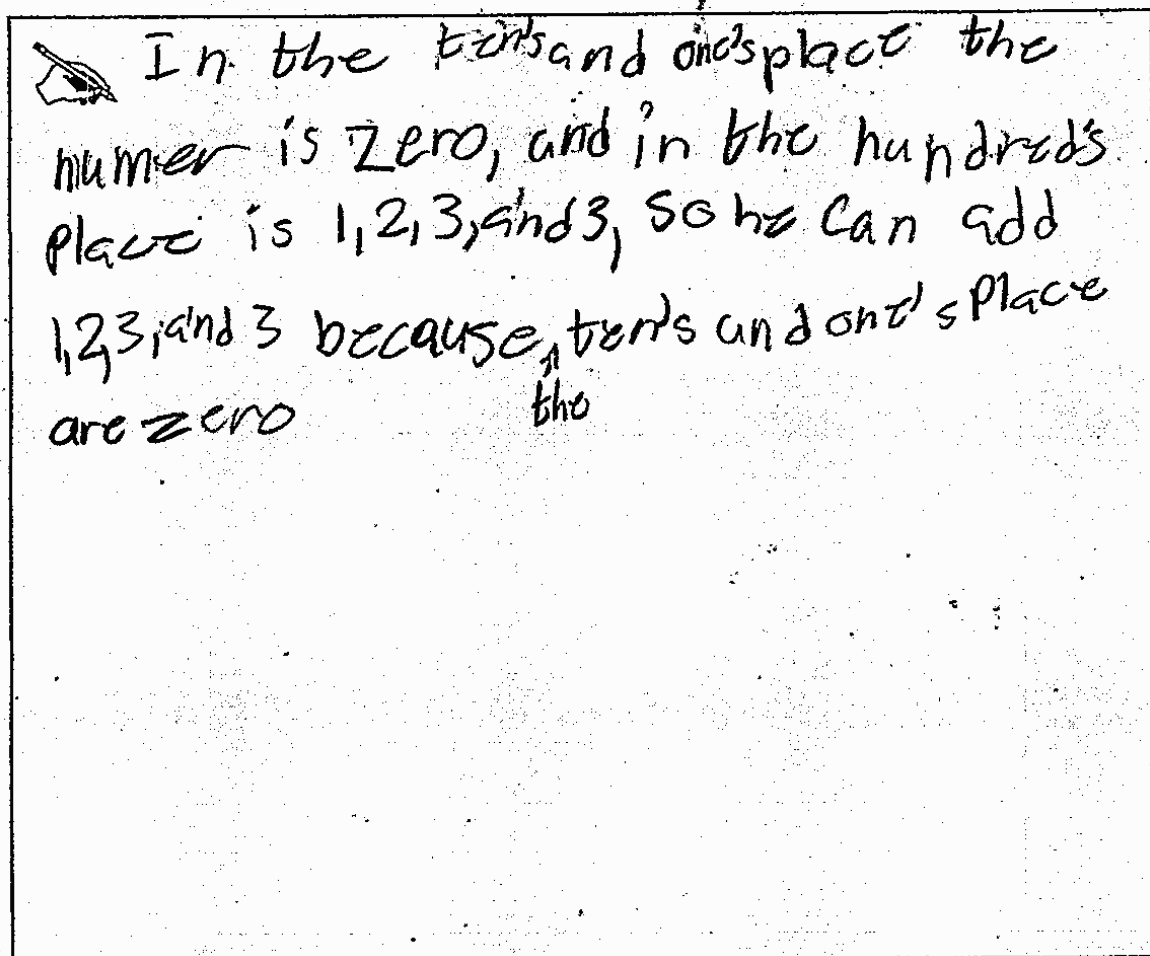 In the ten's and one's place the
numer is zero, and in the hundred's
place is 1,2,3, and 3, so he can add
1,2,3, and 3 because, the ten's and one's place
are zero